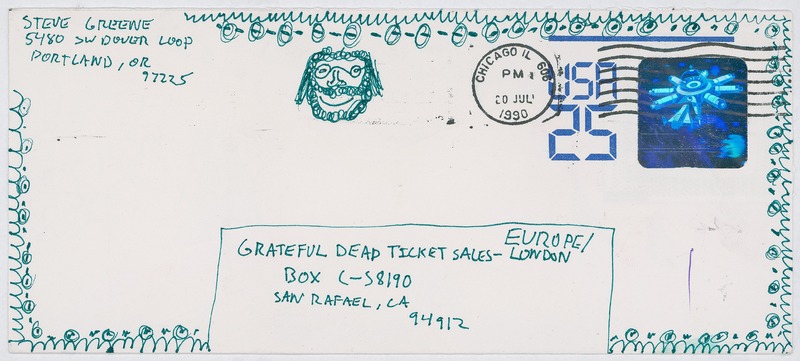 STEVE GREENE
5480 SW DOVER LOOP
PORTLAND, OR
97225
CHICAGO IL 606
PM
20 JUL
1990
USA
25
GRATEFUL DEAD TICKET SALES- EUROPE/
LONDON
BOX C-S8190
SAN RAFAEL, CA
94912